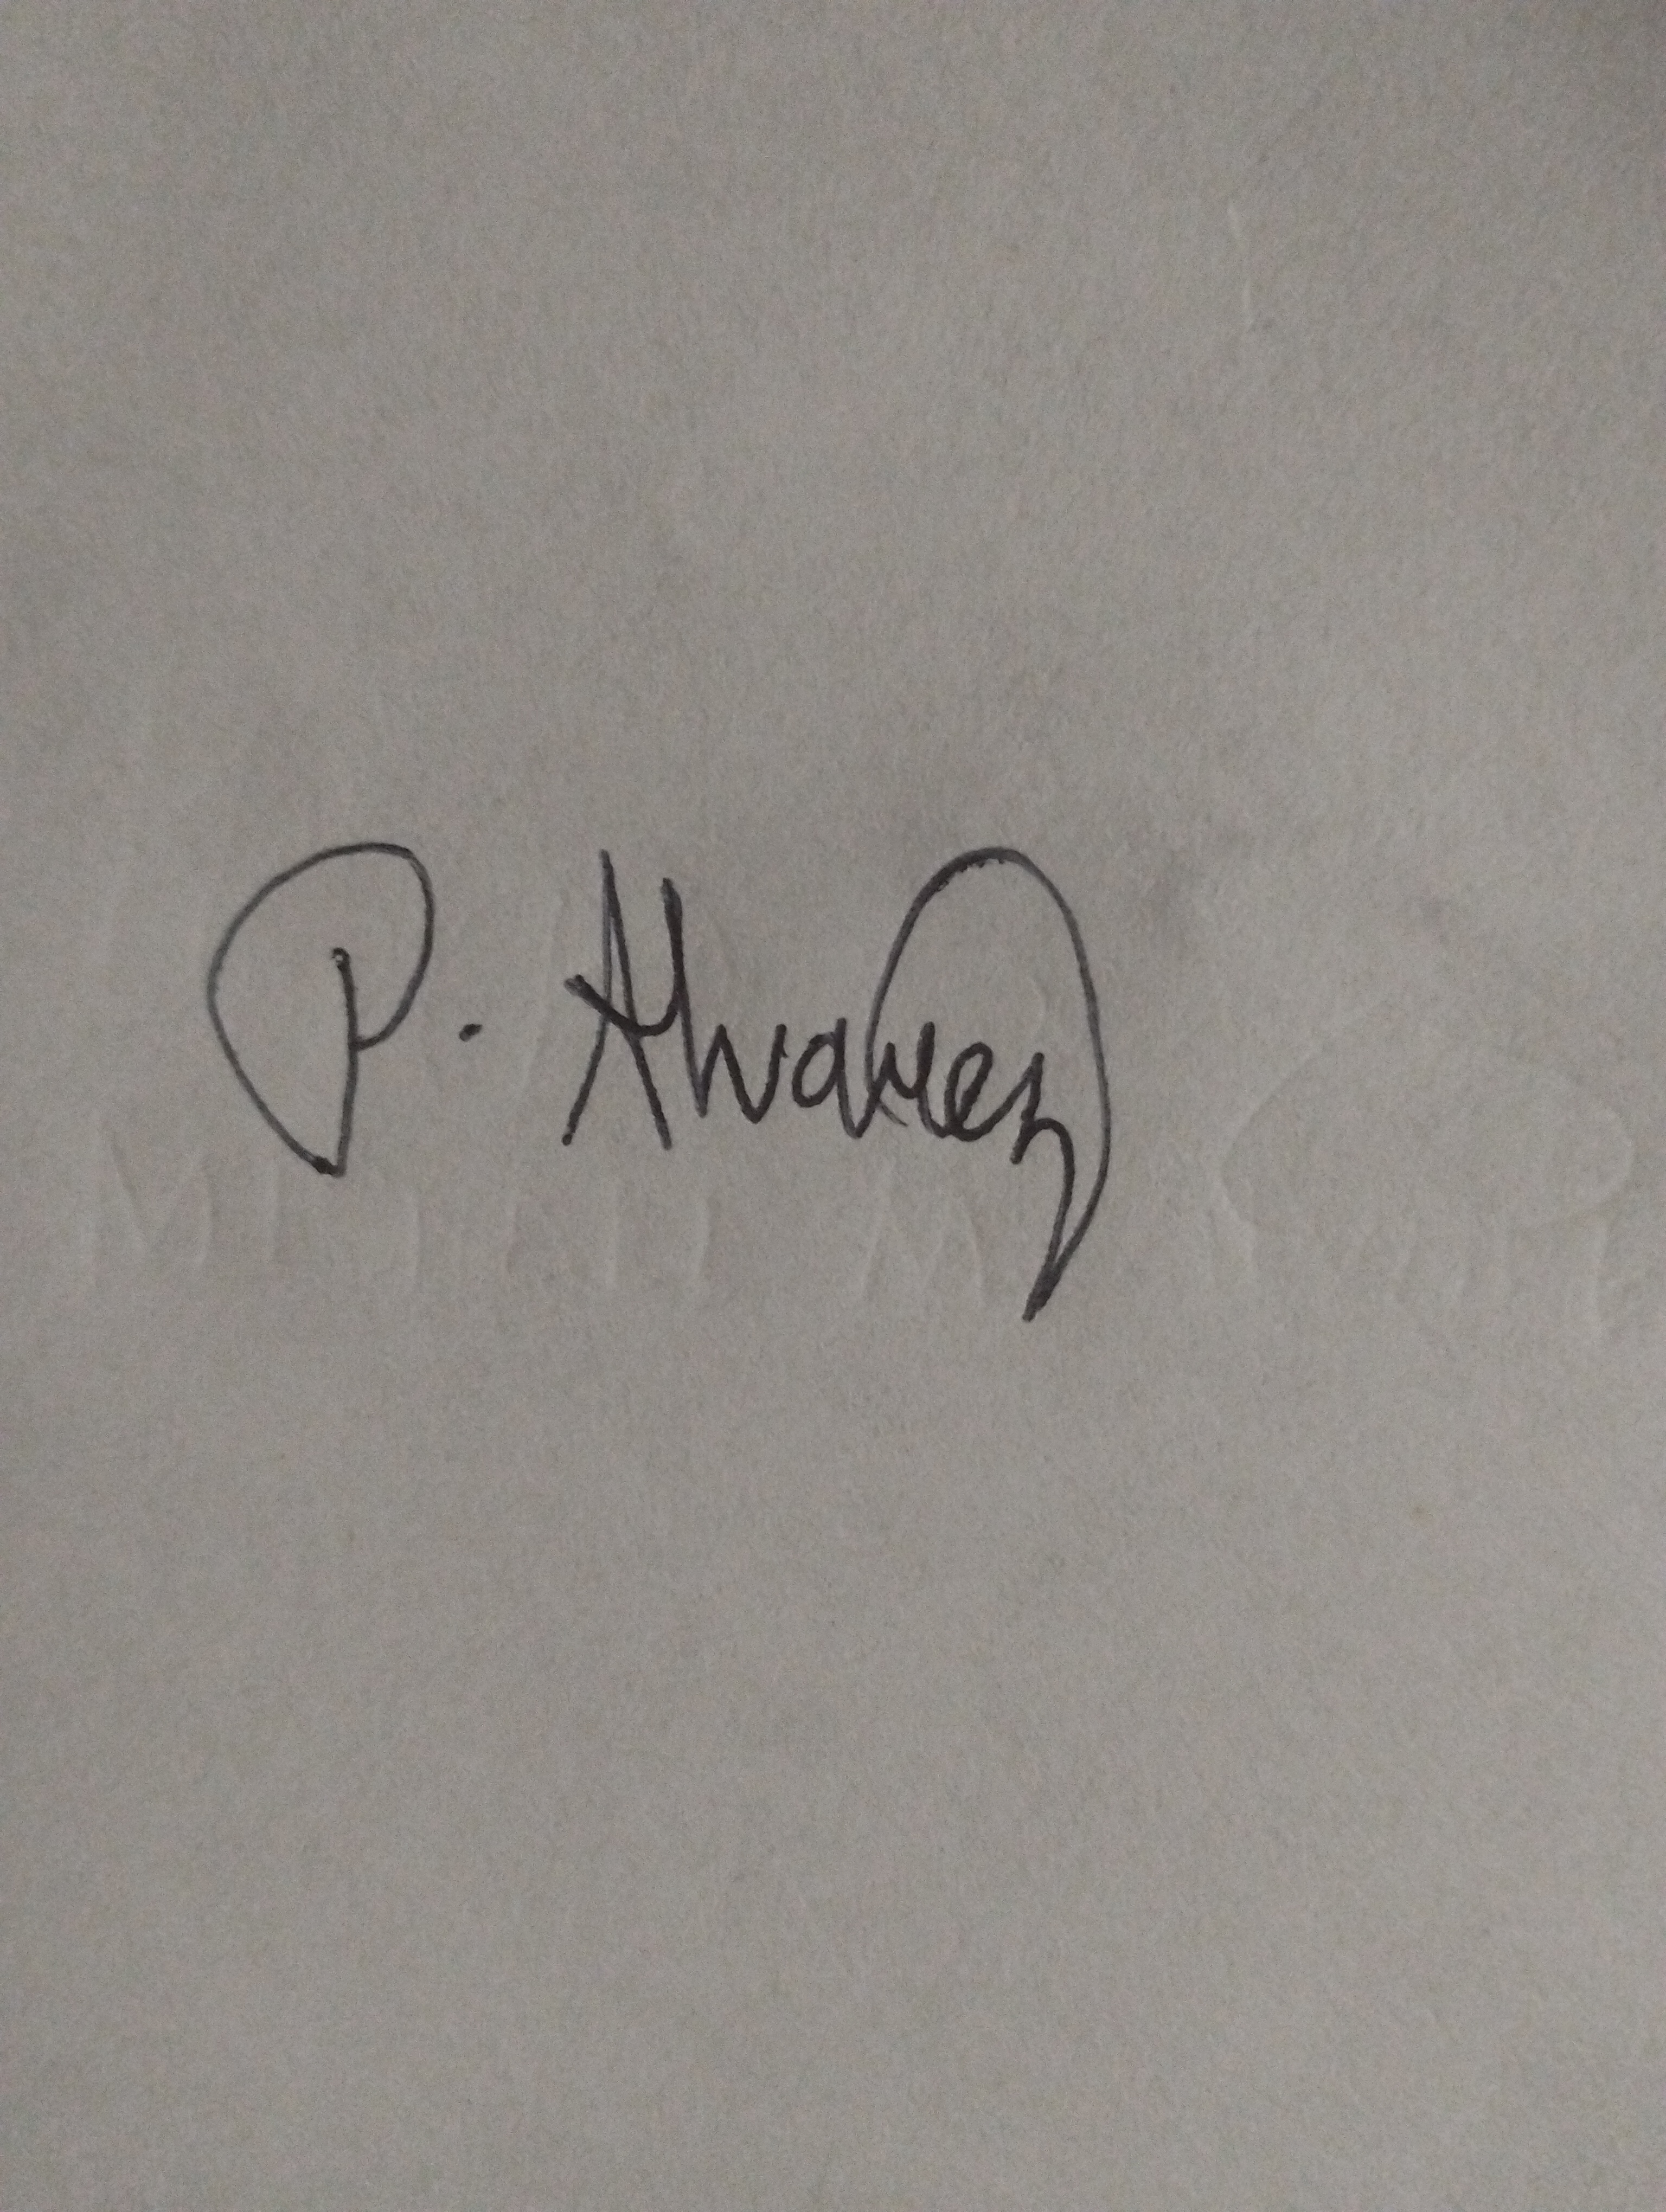 P. Alvarez